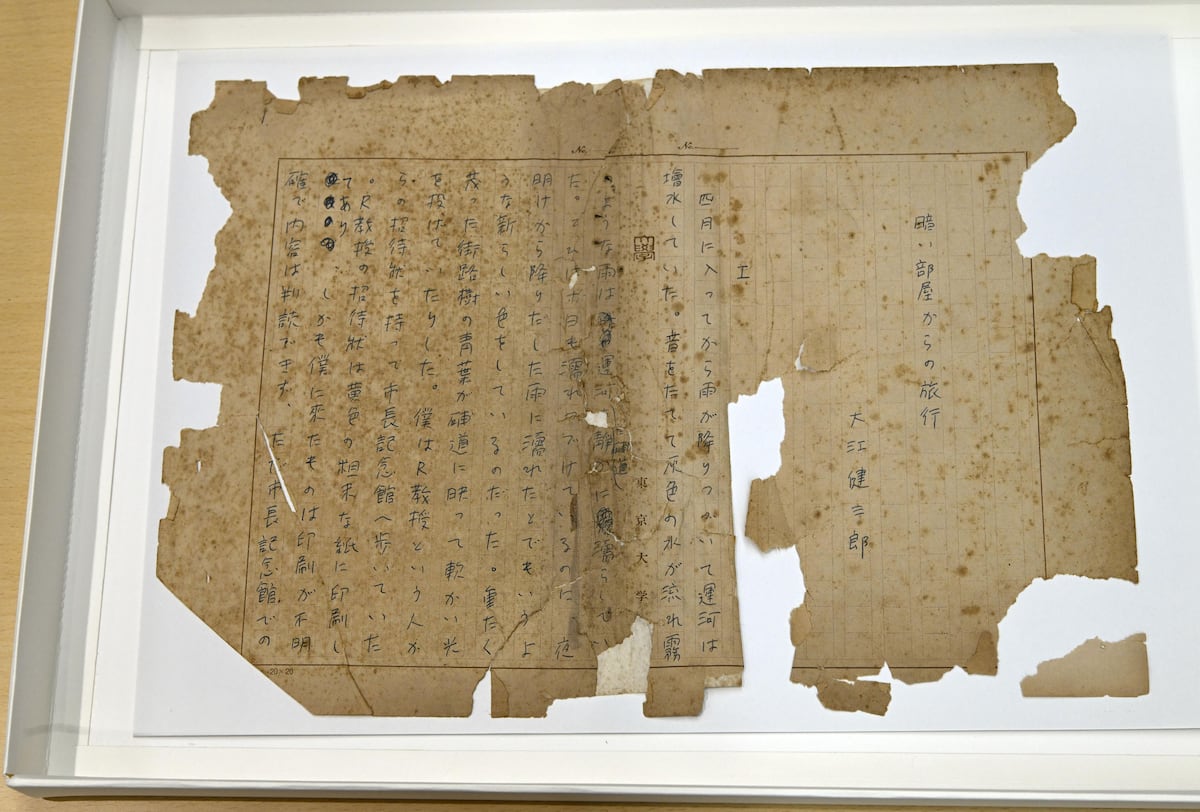 No.
No.
暗い部屋からの旅行
大江健三郎
I
四月に入ってから雨が降りつづいて運河は
増水していた。音をたてて灰色の水が流れ霧
のような雨は運河
静かに
濡らしてい
た。
も濡れつづけているのに、夜
明けから降りだした雨に濡れたとでもいうよ
うな新らしい色をしているのだった。重たく
茂った街路樹の青葉が舗道に映って軟かい光
を投げていたりした。僕はR教授という人か
らの招待状を持って市長記念館へ歩いていた
。R教授の招待状は黄色の粗末な紙に印刷し
てあり、しかも僕に来たものは印刷が不明
確で内容は判読できず、ただ市長記念館での
東京大学
20×20